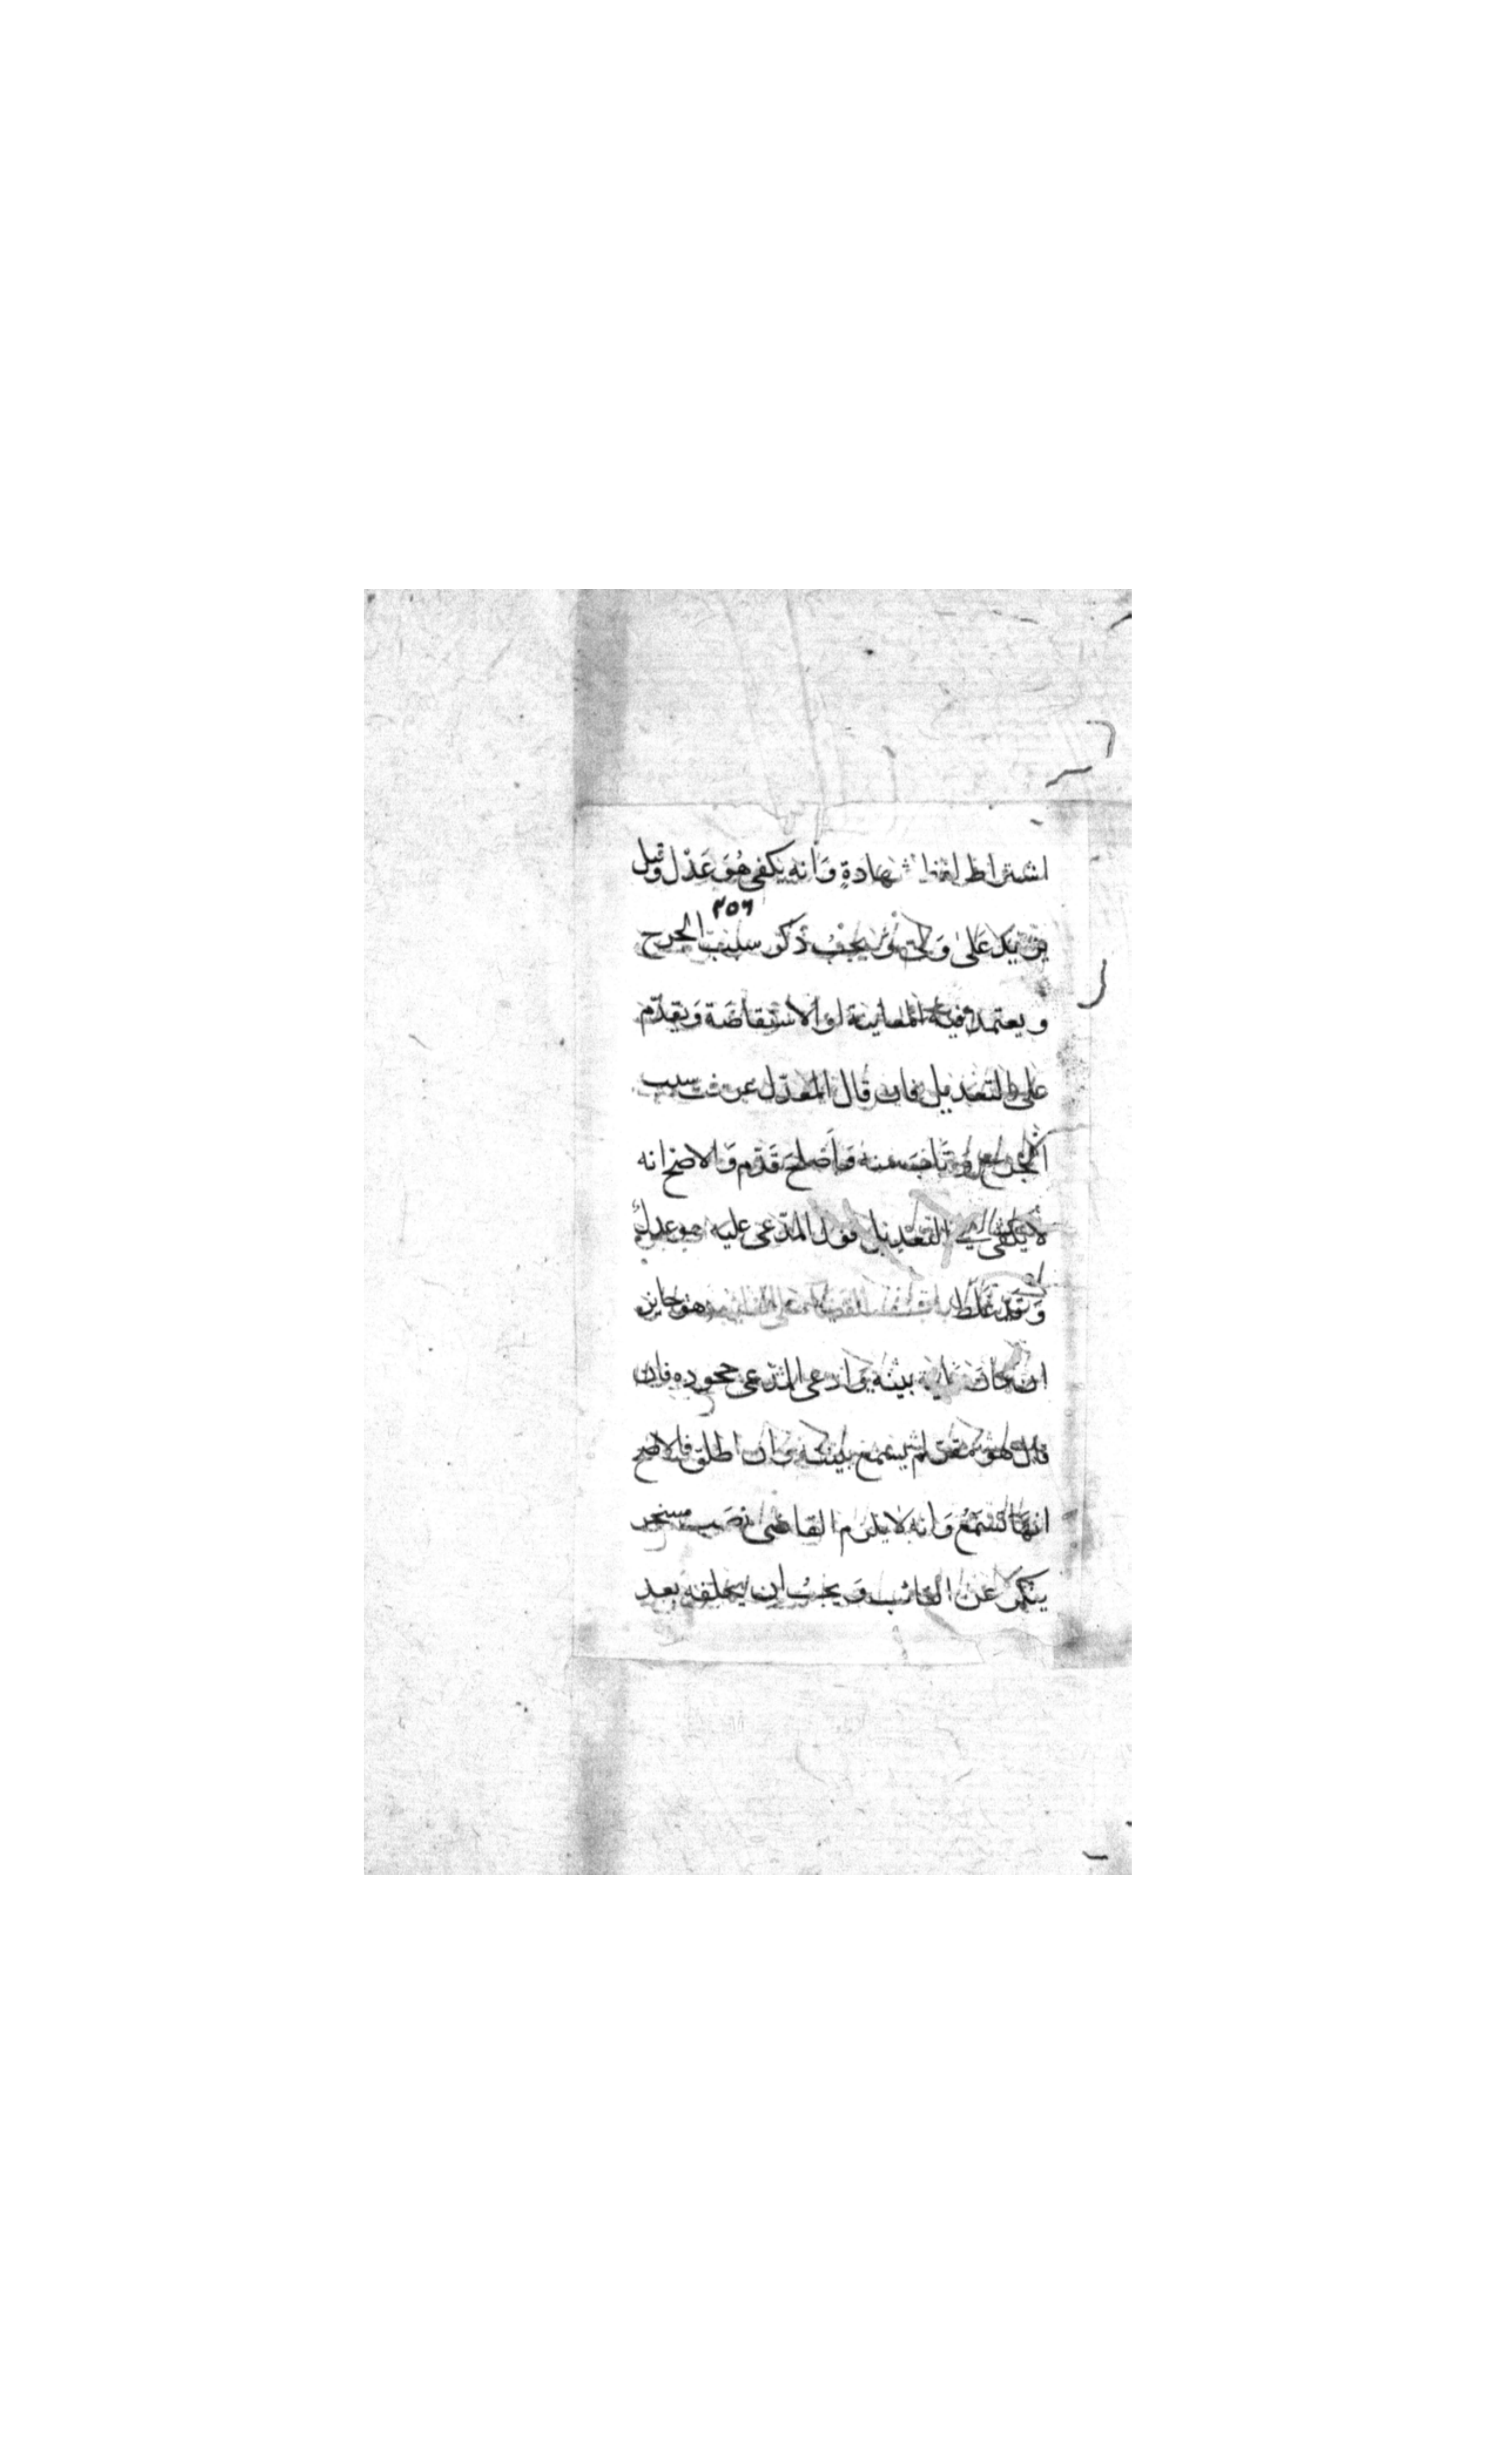 اشتراط لفظ شهادةٍ وَانه يكفى هُوَ عَدْل وقيل
٢٥٦
يزيد عَلىٰ وَلى ويجبُ ذكر سبب الجرح
ويعتمد فيه المعاينة او الاستفاضة وَيقدّم
على التعديل فان قال المعدّل عرفت سبب
الجرح وتابَ منه وَاَصْلَحَ قدّم وَالاصح انه
لا يكفى فى التعديل قول المدّعى عليه هو عدل
وَقد غَلط باب القضا على الغايب هو جايز
ان كانت بينه وَادعى المدّعى جحوده فان
قال هو مقر لم يسمع بينته وان اطلق فالاصح
انها تسْمَعُ وَانه لا يلزم القاضى نصَب مسخر
ينكر عن الغائب وَيجبُ ان يحلفه بعد